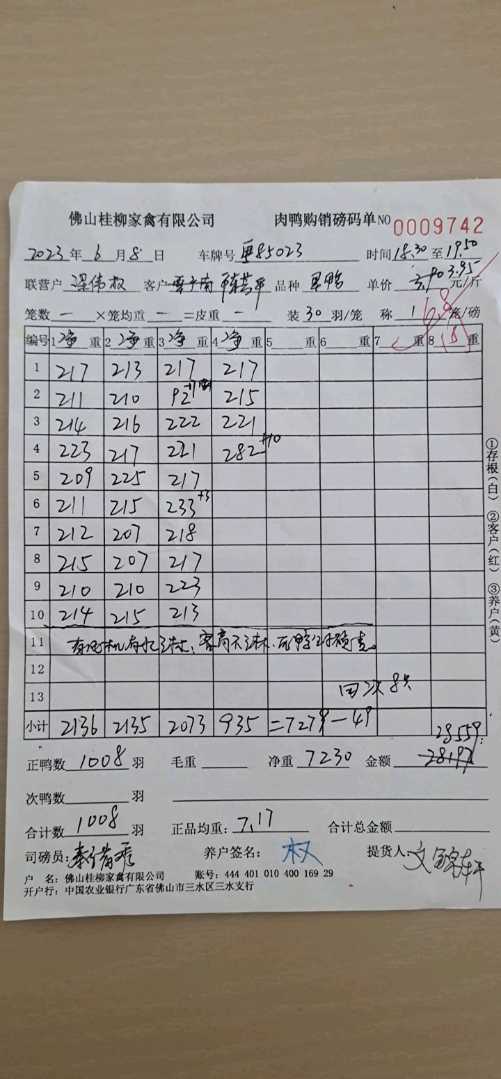 佛山桂柳家禽有限公司 肉鸭购销磅码单 NO 0009742
2023 年 6 月 8 日 车牌号 85023 时间 18:30 至 19:50
联营户 梁伟权 客户 品种 单价 3.90 3.95 元/斤
笼数 一 ×笼均重 一 =皮重 一 装 30 羽/笼 称 1 笼/磅
编号 1 净 重 2 净 重 3 净 重 4 净 重 5 重 6 重 7 重 8 重
1 217 213 217 217
2 211 210 92 215
3 214 216 222 221
4 223 217 221 282 +10
5 209 225 217
6 211 215 233 +3
7 212 207 218
8 215 207 217
9 210 210 223
10 214 215 213
11
12
13
小计 2136 2135 2073 935 =7279-49
28559
正鸭数 1008 羽 毛重 净重 7230 金额
次鸭数 羽
合计数 1008 羽 正品均重: 7.17 合计总金额
司磅员: 养户签名: 权 提货人:
户 名: 佛山桂柳家禽有限公司 账号: 444 401 010 400 169 29
开户行: 中国农业银行广东省佛山市三水区三水支行
①存根(白) ②客户(红) ③养户(黄)